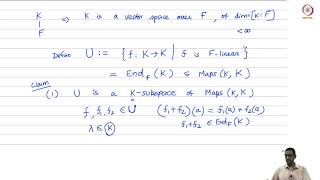 K
| ⇒ K is a vector space over F, of dim = [K:F]
F < ∞
Define U := { f: K → K | f is F-linear }
= End_F(K) ⊆ Maps(K, K)
Claim
(1) U is a K-subspace of Maps(K, K)
f, f₁, f₂ ∈ U (f₁+f₂)(a) = f₁(a) + f₂(a)
λ ∈ K f₁+f₂ ∈ End_F(K)